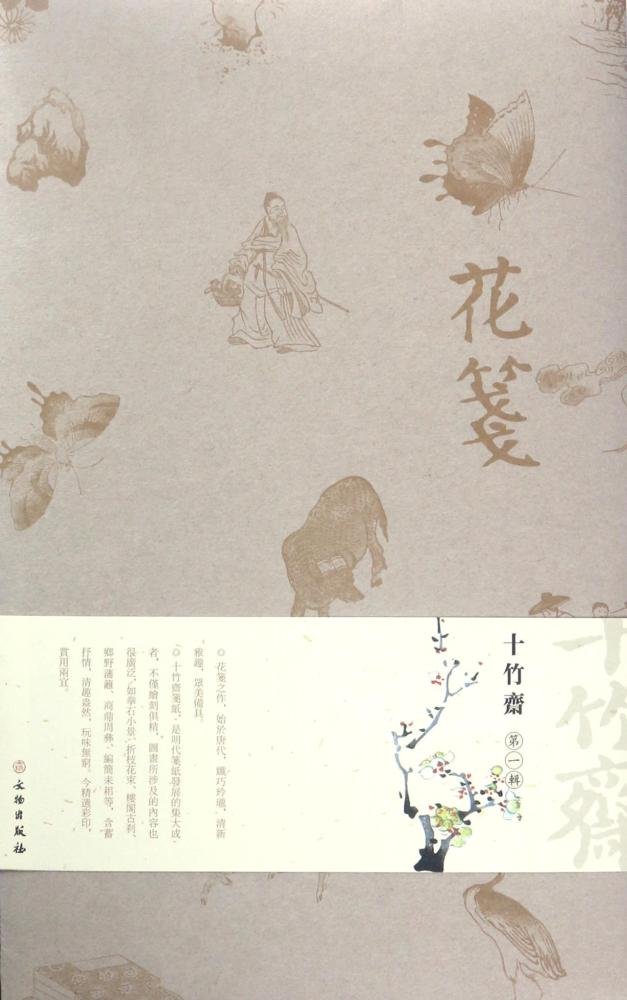 花箋
十竹齋
十竹齋
第一輯
◎花箋之作，始於唐代，纖巧玲瓏，清新
雅趣，眾美備具。
◎十竹齋箋紙，是明代箋紙發展的集大成
者，不僅繪刻俱精，圖畫所涉及的內容也
很廣泛，如拳石小景、折枝花束、樓閣古刹、
鄉野藩籬、商鼎周彝、編簡耒耜等，含蓄
抒情，清趣盎然，玩味無窮。今精選彩印，
賞用兩宜。
文物出版社